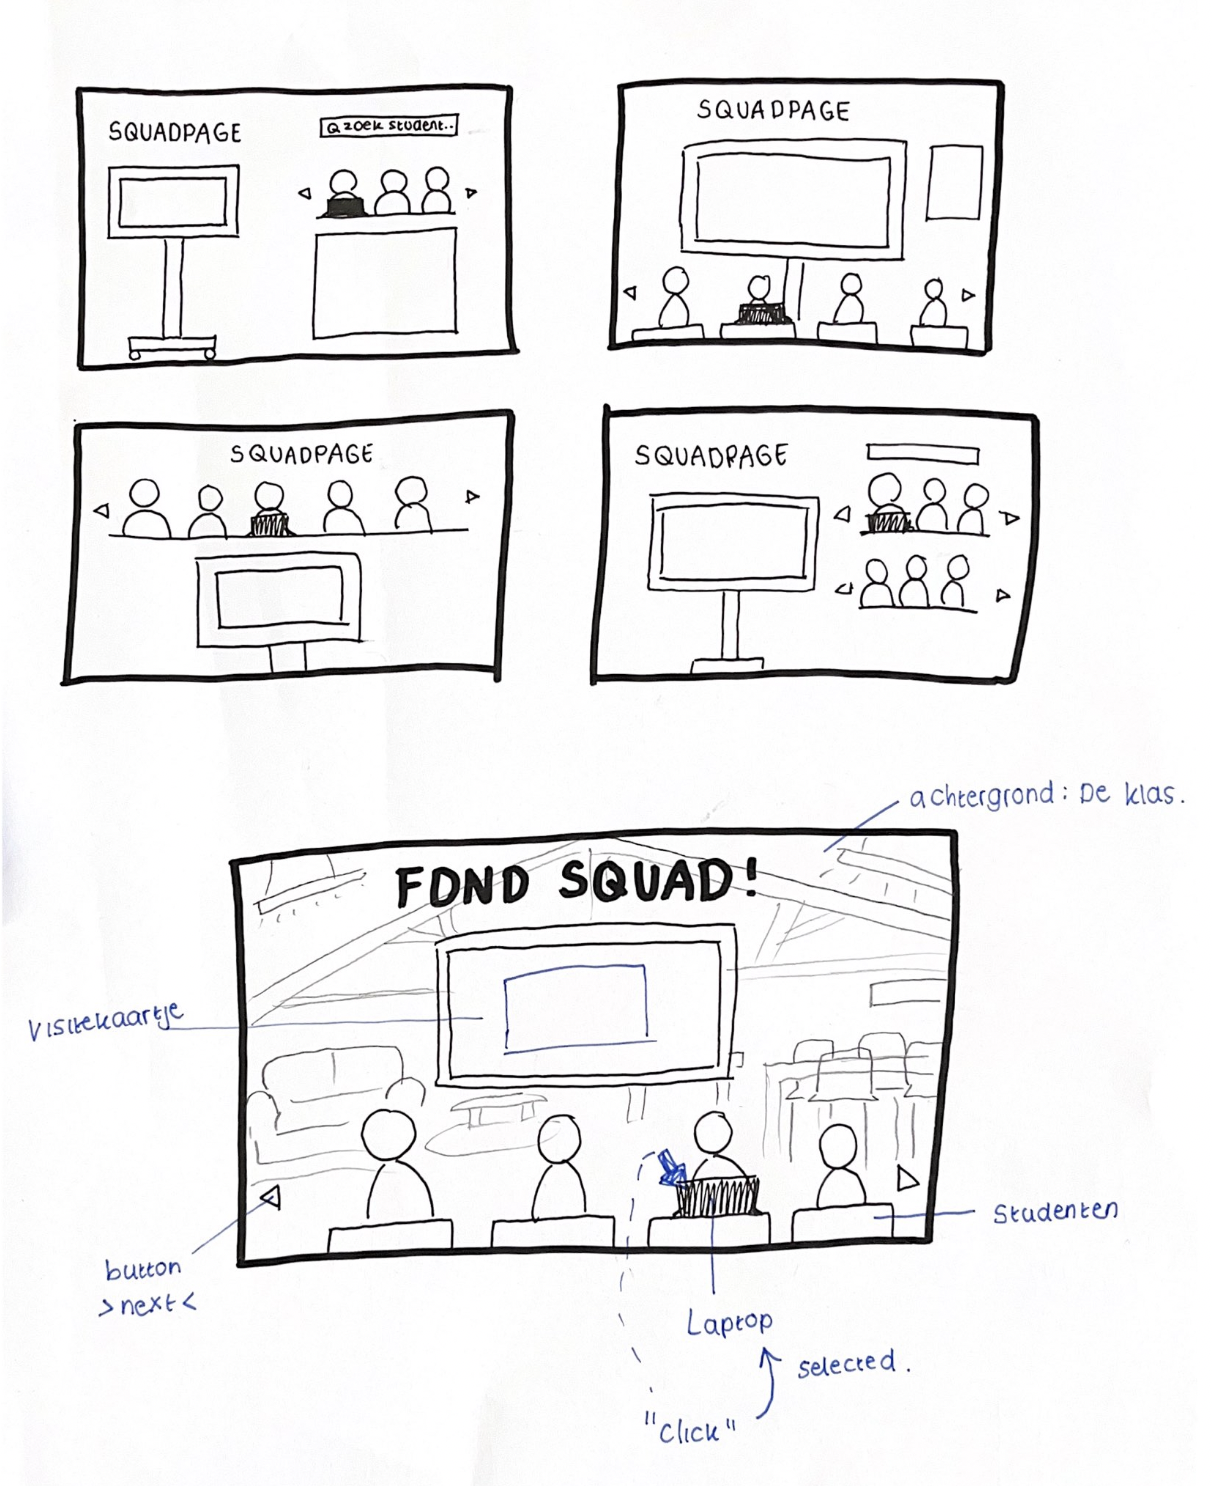 SQUADPAGE
Q zoek student..
SQUADPAGE
SQUADPAGE
SQUADPAGE
achtergrond: De klas.
FDND SQUAD!
Visitekaartje
Studenten
button
>next<
Laptop
selected.
"Click"